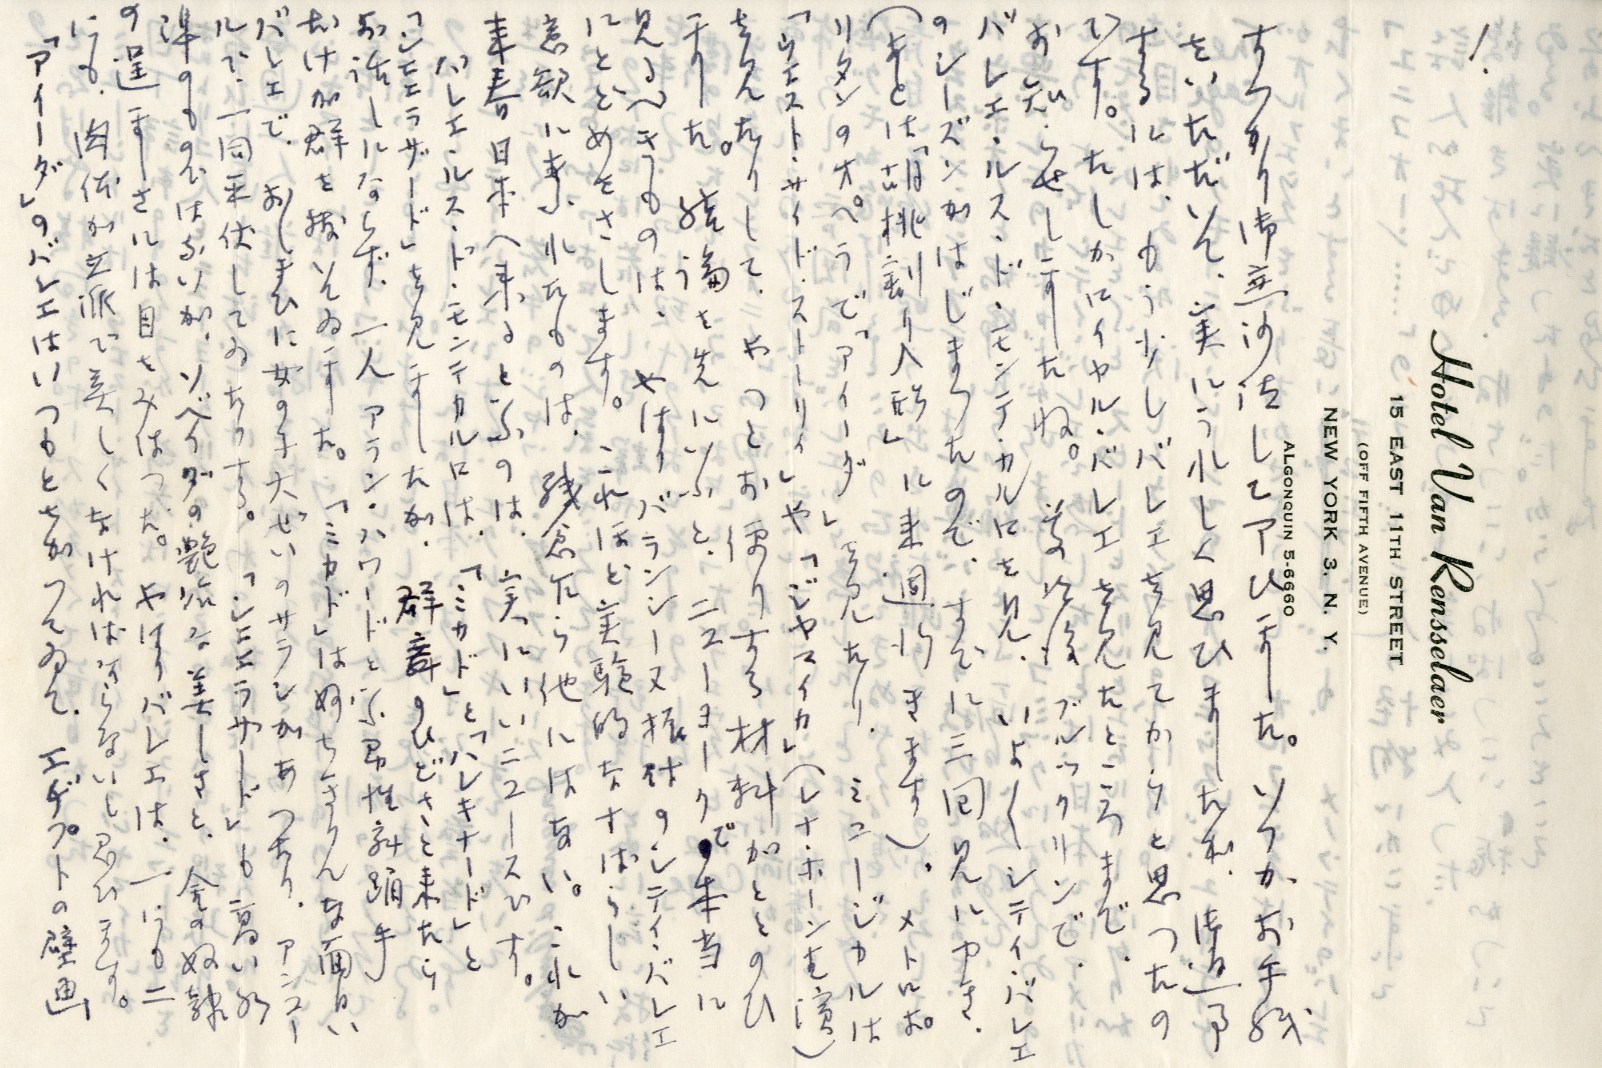 1.
Hotel Van Rensselaer
15 EAST 11TH STREET
(OFF FIFTH AVENUE)
NEW YORK 3, N. Y.
ALGONQUIN 5-6660
すつかり御無沙汰してしまひました。いつかお手紙
をいただいて、実にうれしく思ひましたが、御返事
するには、もう少しバレエを見てからと思つたの
です。たしかロイヤル・バレエを見たところまで、
お知らせしましたね。その後ブルックリンで、
バレエ・ルス・ド・モンテ・カルロを見、いよ〱シティ・バレエ
のシーズンがはじまつたので、すでに三回見にゆき、
(あとは「胡桃割り人形」に来週行きます)、メトロポ
リタンのオペラで「アイーダ」を見たり、ミュージカルは
「ウエスト・サイド・ストーリィ」や「ジャマイカ」(レナ・ホーン主演)
を見たりして、やつとお便りする材料がととのひ
ました。結論を先にいふと、ニューヨークで本当に
見るべきものは、やはりバランシーヌ振付のシティ・バレエ
にとどめをさします。これほど実験的なすばらしい
意欲に充ちたものは、残念乍ら他にはない。これが
来春日本へ来るといふのは、実にいいニュースです。
バレエ・ルス・ド・モンテカルロは、「ミカド」と「ハレキナード」と
「シエラザード」を見ましたが、群舞のひどさと来たら
お話しにならず、一人アラン・ハワードと云ふ男性舞踊手
だけが群を抜いてゐました。「ミカド」はめちやくちやな面白い
バレエで、おしまひに女の子大ぜいのサランがあつたり、アンコー
ルで一同平伏してゐたりする。「シエラザード」も高い水
準のものではないが、ゾベイダの艶冶な美しさと、金の奴隷
の逞ましさには目をみはつた。やはりバレエは、一にも二
にも、肉体が立派で美しくなければならないと思ひます。
「アイーダ」のバレエはいつもとちがつてゐて、エヂプトの壁画